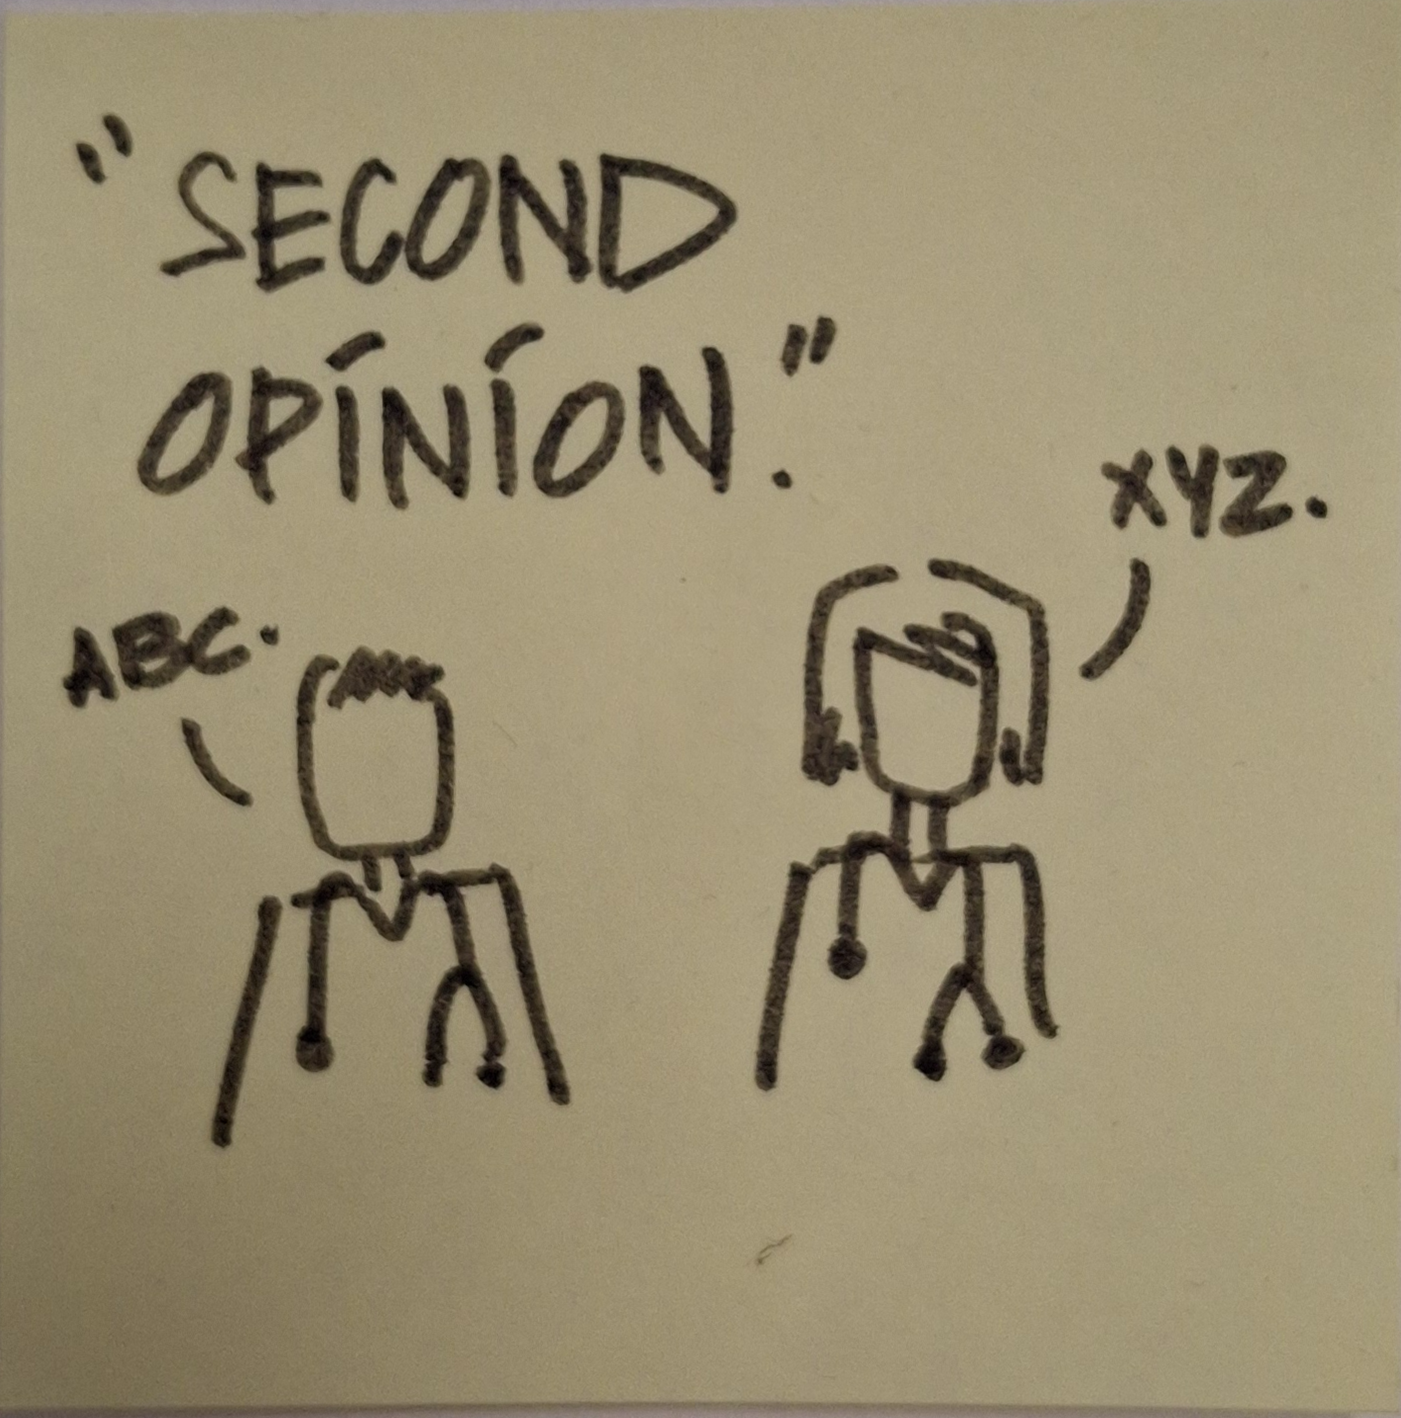 "SECOND
OPINION."
ABC.
XYZ.